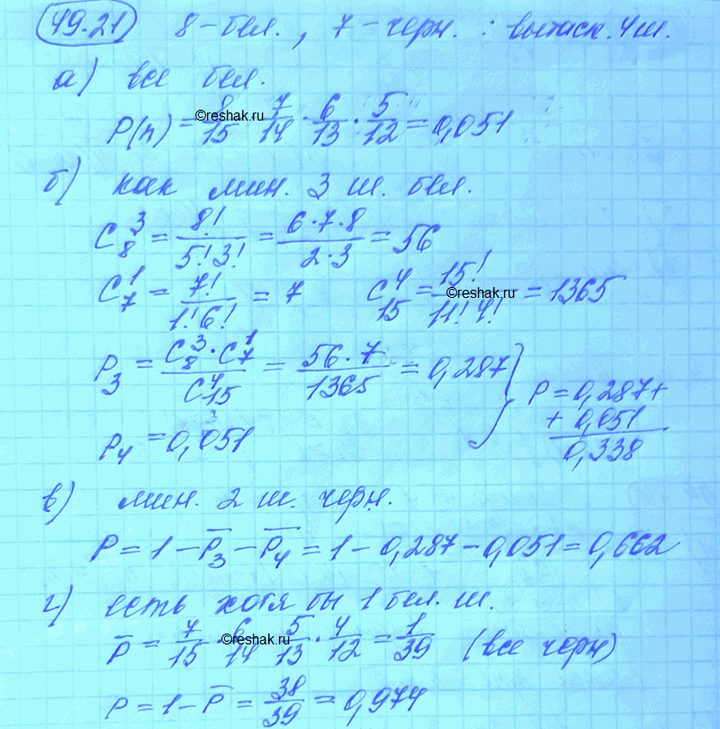 49.21 8-бел., 7-черн.: вытаск. 4ш.
а) все бел.
P(n) = 8/15 · 7/14 · 6/13 · 5/12 = 0,051
©reshak.ru
б) как мин. 3 ш. бел.
C₈³ = 8!/(5!3!) = (6·7·8)/(2·3) = 56
C₇¹ = 7!/(1!6!) = 7 C₁₅⁴ = 15!/(11!4!) = 1365
©reshak.ru
P₃ = (C₈³·C₇¹)/C₁₅⁴ = (56·7)/1365 = 0,287
P₄ = 0,051
} P = 0,287+
+ 0,051
0,338
в) мин. 2 ш. черн.
P = 1 - P̅₃ - P̅₄ = 1 - 0,287 - 0,051 = 0,662
г) есть хотя бы 1 бел. ш.
P̅ = 7/15 · 6/14 · 5/13 · 4/12 = 1/39 (все черн)
©reshak.ru
P = 1 - P̅ = 38/39 = 0,974